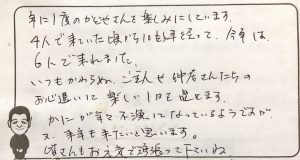 年に1度のかに池さんを楽しみにしています。
4人で来ていた頃から10も5年経って、今年は、
6人で来れました。
いつもかわらぬ、ご主人や仲居さんたちの
お心遣いで楽しい1日を過ごせます。
かにが年々不漁になっているようですが
又、来年も来たいと思います。
皆さんもお元気で頑張って下さいね